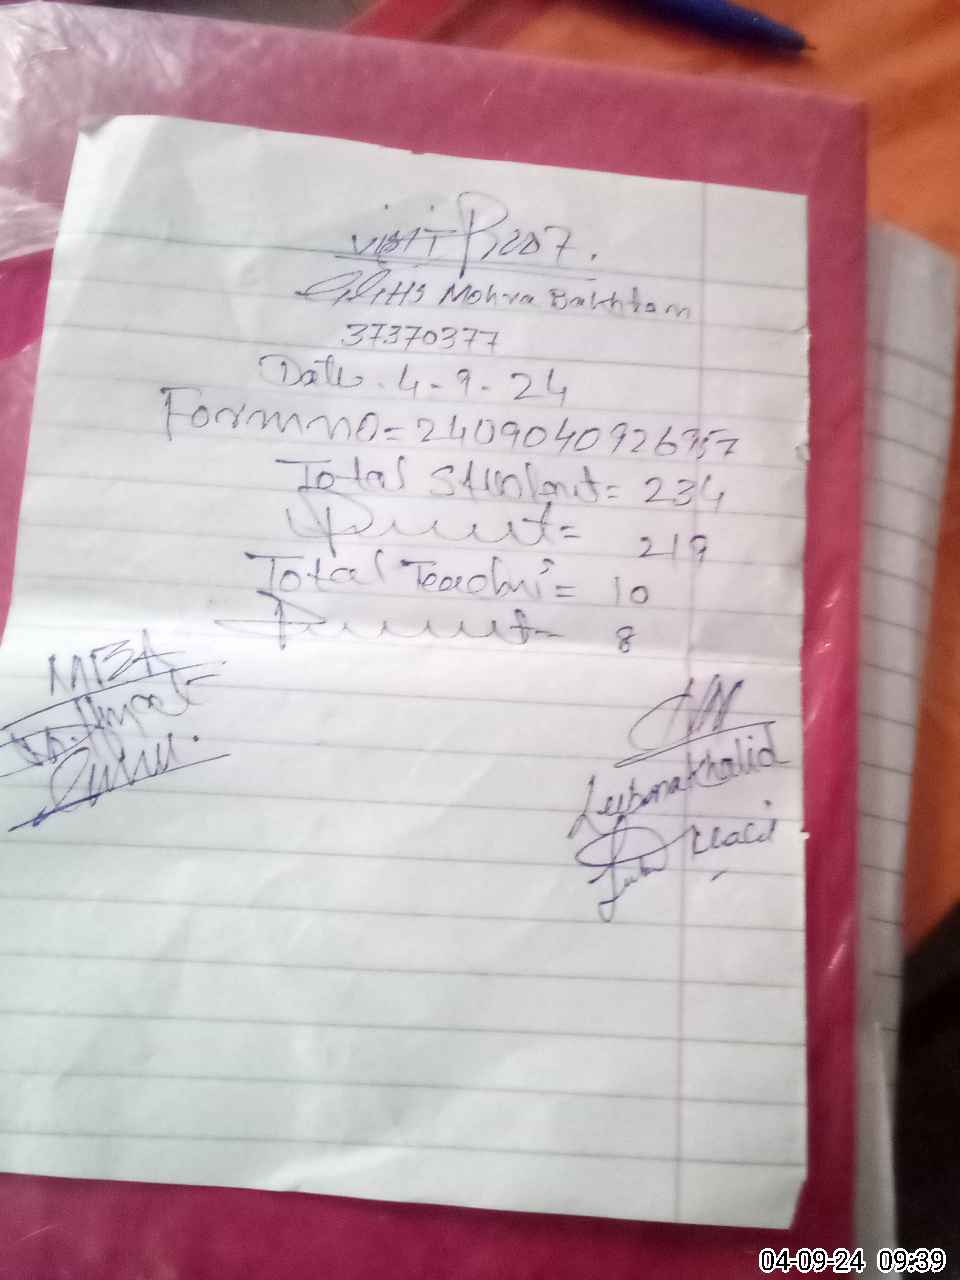 Visit Proof.
GGHS Mohra Bakhtam
37370377
Date. 4-9-24
Form no = 2409040926957
Total Student = 234
Present = 219
Total Teacher = 10
Present = 8
MEA
Lubna Khalid
04-09-24 09:39